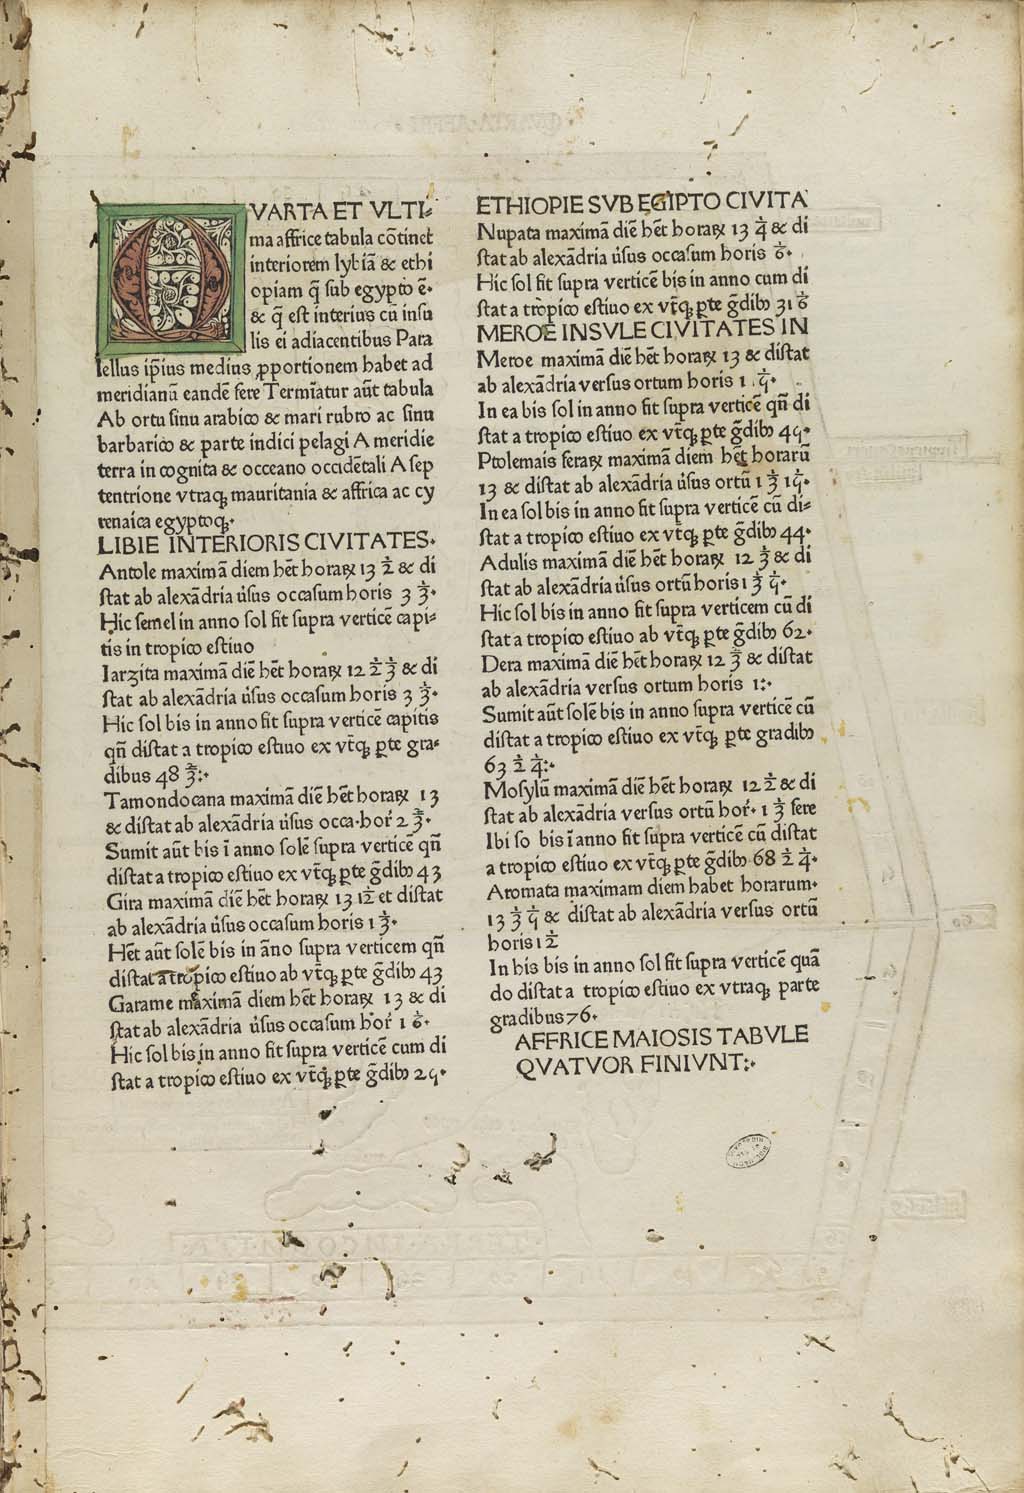 QVARTA ET VLTI⸗
ma affrice tabula cōtinet
interiorem lybiā & ethi
opiam q̄ sub egypto ē·
& q̄ est interius cū insu
lis ei adiacentibus Para
lellus ip̄ius medius ꝓportionem habet ad
meridianū eandē fere Termīatur aūt tabula
Ab ortu sinu arabico & mari rubro ac sinu
barbarico & parte indici pelagi A meridie
terra in cognita & occeano occidētali A sep
tentrione vtraqꝫ mauritania & affrica ac cy
renaica egyptoqꝫ·
LIBIE INTERIORIS CIVITATES·
Autole maximā diem hēt horaꝝ 13 ½ & di
stat ab alexādria u̓sus occasum horis 3 ⅔·
Hic semel in anno sol fit supra verticē capi⸗
tis in tropico estiuo
Iarzita maximā diē hēt horaꝝ 12 ½ ⅓ & di
stat ab alexādria u̓sus occasum horis 3 ⅓·
Hic sol bis in anno fit supra verticē capitis
qn̄ distat a tropico estiuo ex vt̄qꝫ ꝑte gra⸗
dibus 48 ⅔:·
Tamondocana maximā diē hēt horaꝝ 13
& distat ab alexādria u̓sus occa·hor̄ 2 ⅔·
Sumit aūt bis ī anno solē supra verticē qn̄
distat a tropico estiuo ex vt̄qꝫ ꝑte ḡdibꝫ 43
Gira maximā diē hēt horaꝝ 13 1⁄12 et distat
ab alexādria u̓sus occasum horis 1 ⅓·
Hēt aūt solē bis in āno supra verticem qn̄
distat a tropico estiuo ab vt̄qꝫ ꝑte ḡdibꝫ 43
Garame maximā diem hēt horaꝝ 13 & di
stat ab alexādria u̓sus occasum hor̄ 1 ⅙·
Hic sol bis in anno fit supra verticē cum di
stat a tropico estiuo ex vt̄qꝫ ꝑte ḡdibꝫ 2ꝗ·
ETHIOPIE SVB EGIPTO CIVITA
Nupata maximā diē hēt horaꝝ 13 ¼ & di
stat ab alexādria u̓sus occasum horis ⅙·
Hic sol fit supra verticē bis in anno cum di
stat a tropico estiuo ex vt̄qꝫ ꝑte ḡdibꝫ 31 ⅙
MEROE INSVLE CIVITATES IN
Meroe maximā diē hēt horaꝝ 13 & distat
ab alexādria versus ortum horis 1 ⅕·
In ea bis sol in anno fit supra verticē qn̄ di
stat a tropico estiuo ex vt̄qꝫ ꝑte ḡdibꝫ 4ꝗ·
Ptolemais feraꝝ maximā diem hēt horarū
13 & distat ab alexādria u̓sus ortū 1 ⅓ 1⁄15·
In ea sol bis in anno fit supra verticē cū di⸗
stat a tropico estiuo ex vt̄qꝫ ꝑte ḡdibꝫ 44·
Adulis maximā diē hēt horaꝝ 12 ⅔ & di
stat ab alexādria u̓sus ortū horis 1 ⅓ ⅕·
Hic sol bis in anno fit supra verticem cū di
stat a tropico estiuo ab vt̄qꝫ ꝑte ḡdibꝫ 62·
Dera maximā diē hēt horaꝝ 12 ⅔ & distat
ab alexādria versus ortum horis 1:·
Sumit aūt solē bis in anno supra verticē cū
distat a tropico estiuo ex vt̄qꝫ ꝑte gradibꝫ
63 ½ ¼:·
Mosylū maximā diē hēt horaꝝ 12 ½ & di
stat ab alexādria versus ortū hor̄· 1 ⅓ fere
Ibi so bis ī anno fit supra verticē cū distat
a tropico estiuo ex vt̄qꝫ ꝑte ḡdibꝫ 68 ½ ¼·
Aromata maximam diem habet horarum·
13 ⅓ ⅕ & distat ab alexādria versus ortū
horis 1 ½
In his bis in anno sol fit supra verticē quā
do distat a tropico estiuo ex vtraqꝫ parte
gradibus 76·
AFFRICE MAIOSIS TABVLE
QVATVOR FINIVNT:·